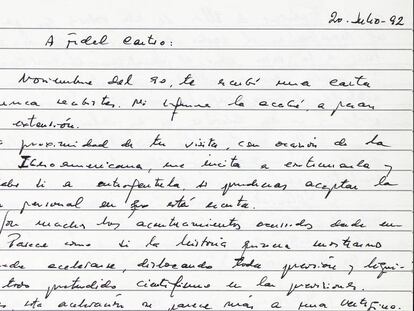 20-Julio-92
A Fidel Castro:
Noviembre del 90, te escribí una carta
nunca recibistes. Ni siquiera la acabé, a pesar
extensión.
proximidad de tu visita, con ocasión de la
Iberoamericana, me incita a
si a si pudieras aceptar la
personal en que está escrita.
Son muchos los acontecimientos ocurridos desde en
Parece como si la historia quisiera mostrarnos
acelerarse, dislocando toda previsión y
pretendido cientifismo en las previsiones.
esta aceleración se parece más a una vértigo.